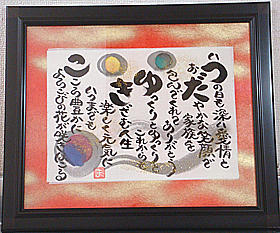 いつの日も深い愛情と
おだやかな笑顔で
家族を
包んでくれてありがとう
ゆっくりとゆっくりと
これから
きざむ人生
楽しく元気に
いつまでも
こころ豊かに
よろこびの花がさきつづける